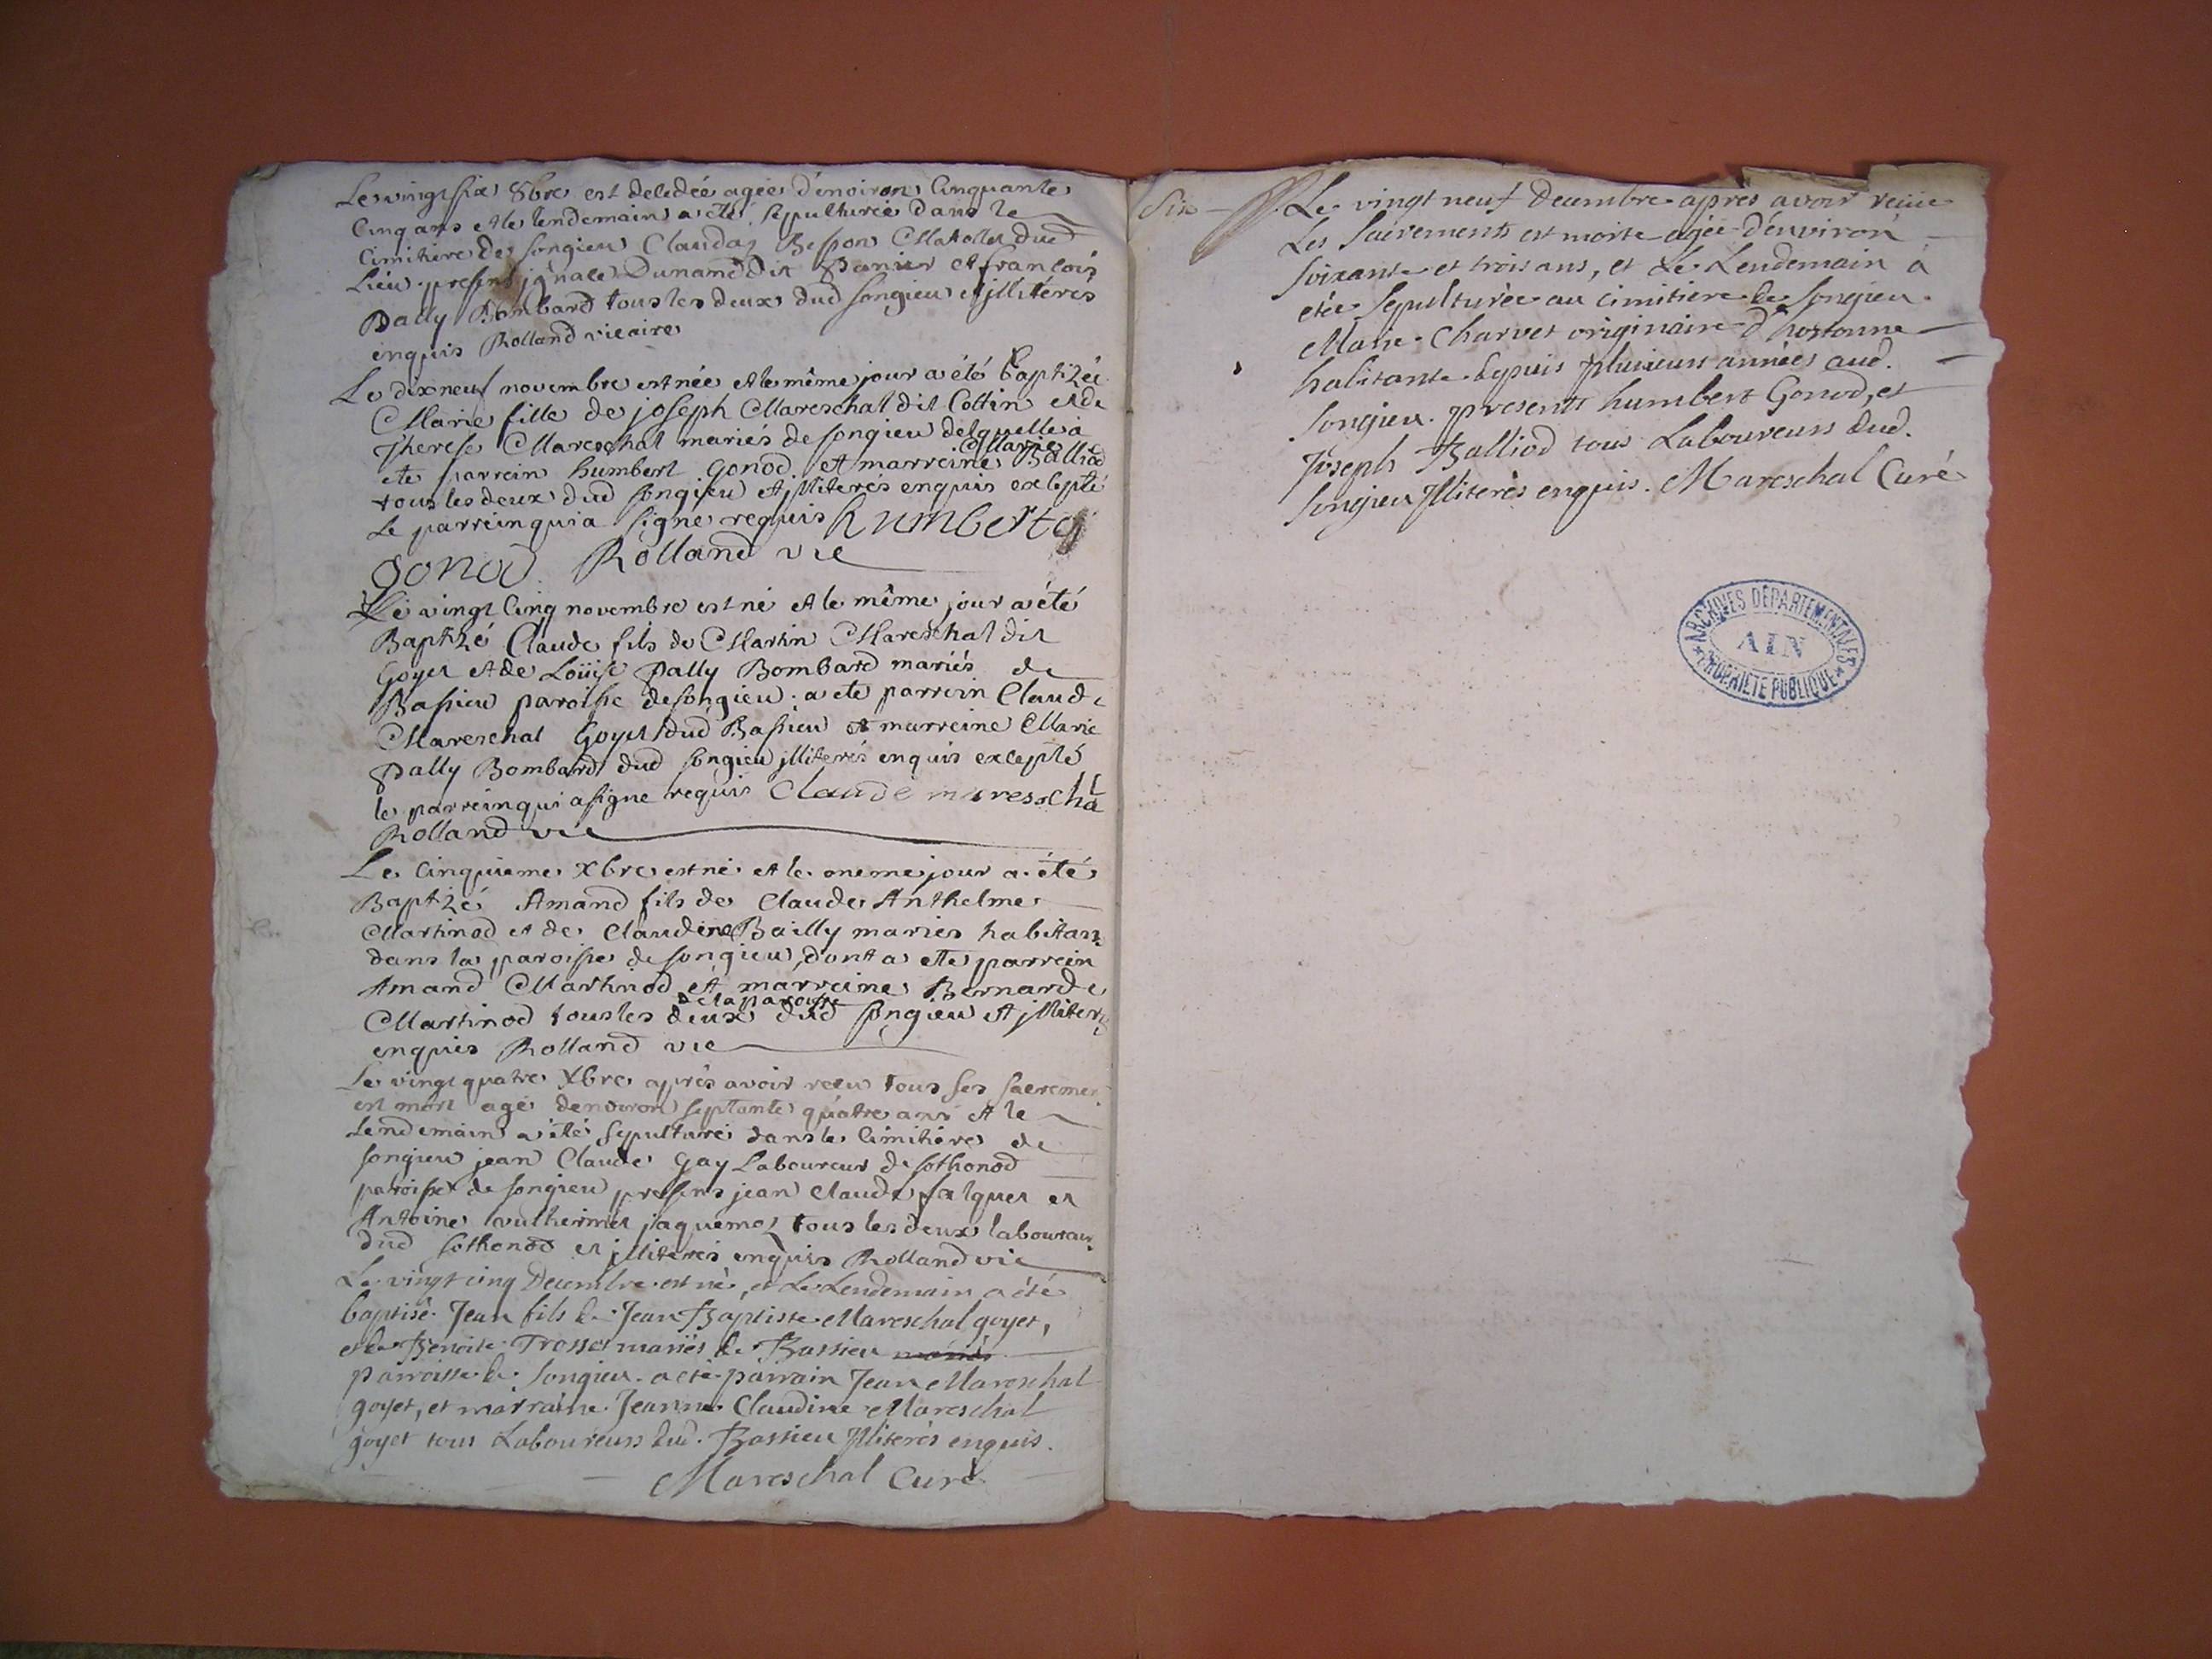 Le vingt six 8bre est deledée agée d'environ Cinquante
Cinq ans et le lendemain a eté sepulturée dans le
Cimitiere de songieu Claudaz Besson Matollet dud
Lieu presens ignace Dunand dit Panier et françois
Bally Bombard tous les deux dud songieu et jlliterés
enquis Rolland vicaire
Le dix neuf novembre est née et le même jour a été baptizée
Marie fille de joseph Mareschal dit Cottin et de
Therese Mareschal mariés de songieu delquelle a
ete parrein humbert gonod et marreine Marie Balliod
tous les deux dud songieu et jlliterés enquis excepté
Le parrein qui a signé requis humberte
gonod Rolland vic
Le vingt Cinq novembre est né et le même jour a été
Baptizé Claude fils de Martin Mareschal dit
Goyet et de Loüise Pally Bombard mariés de
Bassieu paroisse de songieu. a ete parrein Claude
Mareschal Goyet dud Bassieu et marreine Marie
Pally Bombard dud songieu jlliterés enquis excepté
le parrein qui a signe requis Claude maresschal
Rolland vic
Le Cinquieme Xbre est né et le meme jour a été
Baptizé Amand fils de Claude Anthelme
Martinod et de Claudine Bailly mariés habitans
dans la paroisse de songieu, dont a ete parrein
Amand Martinod et marreine Bernarde
Martinod tous les deux de la paroisse dud songieu et jlliterés
enquis Rolland vic
Le vingt quatre Xbre après avoir recu tous ses sacremens
est mort agé denviron septante quatre ans et le
Lendemain a été sepulturé dans le Cimitiere de
songieu jean Claude Gay Laboureur de sothonod
paroisse de songieu presens jean Claude falquet et
Antoine vuthermet jaquemoz tous les deux laboureurs
dud sothonod et jlliterés enquis Rolland vic
Le vingt cinq Decembre est né, et Le Lendemain a été
baptisé Jean fils de Jean Baptiste Mareschal goyet,
et de Benoite Trosset mariés de Bassieu mariés
parroisse de Songieu. a été parrain Jean Mareschal
goyet, et marraine Jeanne Claudine Mareschal
goyet tous Laboureurs dud. Bassieu Jlliterés enquis.
Mareschal Curé
Six
Le vingt neuf Decembre après avoir reçüe
Les Sacrements est morte agée d'environ
soixante et trois ans, et Le Lendemain a
etée Sepulturée au cimitiere de Songieu
Marie Charvet originaire d'hostonne
habitante depuis plusieurs années aud.
Songieu. presents humbert Gonod, et
Joseph Balliod tous Laboureurs dud.
Songieu Jlliterés enquis. Mareschal Curé
ARCHIVES DÉPARTEMENTALES
AIN
PROPRIÉTÉ PUBLIQUE